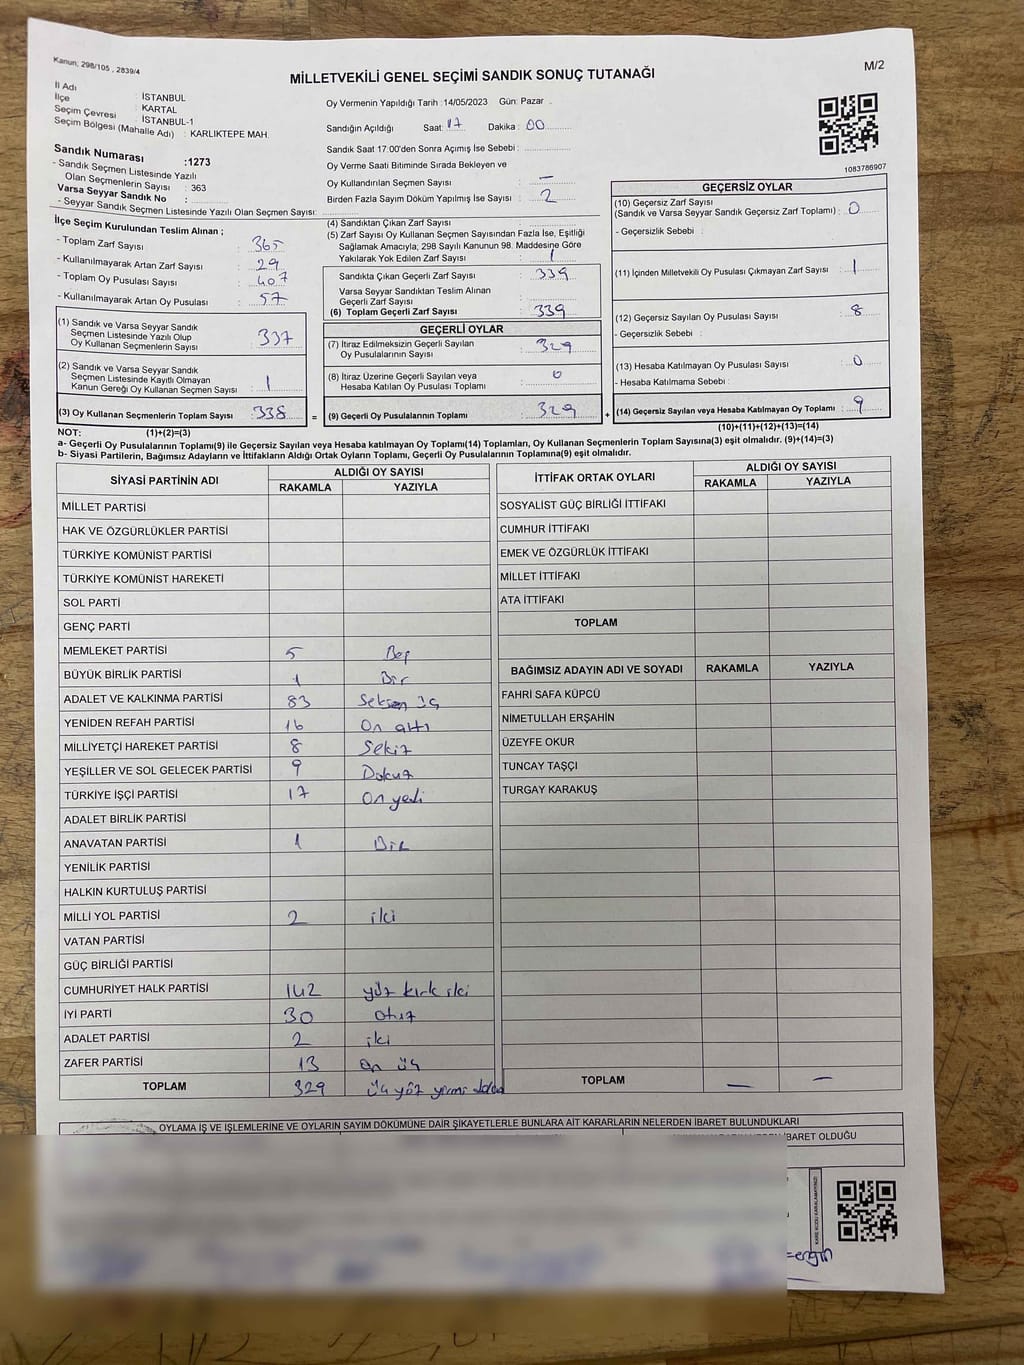 Kanun; 298/105 , 2839/4
MİLLETVEKİLİ GENEL SEÇİMİ SANDIK SONUÇ TUTANAĞI
M/2
İl Adı : İSTANBUL
İlçe : KARTAL
Seçim Çevresi : İSTANBUL-1
Seçim Bölgesi (Mahalle Adı) : KARLIKTEPE MAH.
Sandık Numarası :1273
- Sandık Seçmen Listesinde Yazılı
Olan Seçmenlerin Sayısı : 363
Varsa Seyyar Sandık No :
- Seyyar Sandık Seçmen Listesinde Yazılı Olan Seçmen Sayısı:
Oy Vermenin Yapıldığı Tarih :14/05/2023 Gün: Pazar
Sandığın Açıldığı Saat: 17 Dakika : 00
Sandık Saat 17:00'den Sonra Açımış İse Sebebi :
Oy Verme Saati Bitiminde Sırada Bekleyen ve
Oy Kullandırılan Seçmen Sayısı : —
Birden Fazla Sayım Döküm Yapılmış İse Sayısı : 2
1083786907
İlçe Seçim Kurulundan Teslim Alınan ;
- Toplam Zarf Sayısı : 365
- Kullanılmayarak Artan Zarf Sayısı : 29
- Toplam Oy Pusulası Sayısı : 407
- Kullanılmayarak Artan Oy Pusulası : 57
(1) Sandık ve Varsa Seyyar Sandık
Seçmen Listesinde Yazılı Olup
Oy Kullanan Seçmenlerin Sayısı : 337
(2) Sandık ve Varsa Seyyar Sandık
Seçmen Listesinde Kayıtlı Olmayan
Kanun Gereği Oy Kullanan Seçmen Sayısı : 1
(3) Oy Kullanan Seçmenlerin Toplam Sayısı : 338
(4) Sandıktan Çıkan Zarf Sayısı :
(5) Zarf Sayısı Oy Kullanan Seçmen Sayısından Fazla İse, Eşitliği
Sağlamak Amacıyla; 298 Sayılı Kanunun 98. Maddesine Göre
Yakılarak Yok Edilen Zarf Sayısı : 1
Sandıkta Çıkan Geçerli Zarf Sayısı : 339
Varsa Seyyar Sandıktan Teslim Alınan
Geçerli Zarf Sayısı :
(6) Toplam Geçerli Zarf Sayısı : 339
GEÇERLİ OYLAR
(7) İtiraz Edilmeksizin Geçerli Sayılan
Oy Pusulalarının Sayısı : 329
(8) İtiraz Üzerine Geçerli Sayılan veya
Hesaba Katılan Oy Pusulası Toplamı : 0
= (9) Geçerli Oy Pusulalarının Toplamı : 329
GEÇERSİZ OYLAR
(10) Geçersiz Zarf Sayısı
(Sandık ve Varsa Seyyar Sandık Geçersiz Zarf Toplamı) : 0
- Geçersizlik Sebebi :
(11) İçinden Milletvekili Oy Pusulası Çıkmayan Zarf Sayısı : 1
(12) Geçersiz Sayılan Oy Pusulası Sayısı : 8
- Geçersizlik Sebebi :
(13) Hesaba Katılmayan Oy Pusulası Sayısı : 0
- Hesaba Katılmama Sebebi :
+ (14) Geçersiz Sayılan veya Hesaba Katılmayan Oy Toplamı : 9
NOT: (1)+(2)=(3)
(10)+(11)+(12)+(13)=(14)
a- Geçerli Oy Pusulalarının Toplamı(9) ile Geçersiz Sayılan veya Hesaba katılmayan Oy Toplamı(14) Toplamları, Oy Kullanan Seçmenlerin Toplam Sayısına(3) eşit olmalıdır. (9)+(14)=(3)
b- Siyasi Partilerin, Bağımsız Adayların ve İttifakların Aldığı Ortak Oyların Toplamı, Geçerli Oy Pusulalarının Toplamına(9) eşit olmalıdır.
SİYASİ PARTİNİN ADI ALDIĞI OY SAYISI
RAKAMLA YAZIYLA
MİLLET PARTİSİ
HAK VE ÖZGÜRLÜKLER PARTİSİ
TÜRKİYE KOMÜNİST PARTİSİ
TÜRKİYE KOMÜNİST HAREKETİ
SOL PARTİ
GENÇ PARTİ
MEMLEKET PARTİSİ 5 Beş
BÜYÜK BİRLİK PARTİSİ 1 Bir
ADALET VE KALKINMA PARTİSİ 83 Seksen üç
YENİDEN REFAH PARTİSİ 16 On altı
MİLLİYETÇİ HAREKET PARTİSİ 8 Sekiz
YEŞİLLER VE SOL GELECEK PARTİSİ 9 Dokuz
TÜRKİYE İŞÇİ PARTİSİ 17 On yedi
ADALET BİRLİK PARTİSİ
ANAVATAN PARTİSİ 1 Bir
YENİLİK PARTİSİ
HALKIN KURTULUŞ PARTİSİ
MİLLİ YOL PARTİSİ 2 iki
VATAN PARTİSİ
GÜÇ BİRLİĞİ PARTİSİ
CUMHURİYET HALK PARTİSİ 142 yüz kırk iki
İYİ PARTİ 30 Otuz
ADALET PARTİSİ 2 iki
ZAFER PARTİSİ 13 on üç
TOPLAM 329 üç yüz yirmi dokuz
İTTİFAK ORTAK OYLARI ALDIĞI OY SAYISI
RAKAMLA YAZIYLA
SOSYALİST GÜÇ BİRLİĞİ İTTİFAKI
CUMHUR İTTİFAKI
EMEK VE ÖZGÜRLÜK İTTİFAKI
MİLLET İTTİFAKI
ATA İTTİFAKI
TOPLAM
BAĞIMSIZ ADAYIN ADI VE SOYADI RAKAMLA YAZIYLA
FAHRİ SAFA KÜPCÜ
NİMETULLAH ERŞAHİN
ÜZEYFE OKUR
TUNCAY TAŞÇI
TURGAY KARAKUŞ
TOPLAM — —
OYLAMA İŞ VE İŞLEMLERİNE VE OYLARIN SAYIM DÖKÜMÜNE DAİR ŞİKAYETLERLE BUNLARA AİT KARARLARIN NELERDEN İBARET BULUNDUKLARI
İBARET OLDUĞU
KARE KODU KARALAMAYINIZ!